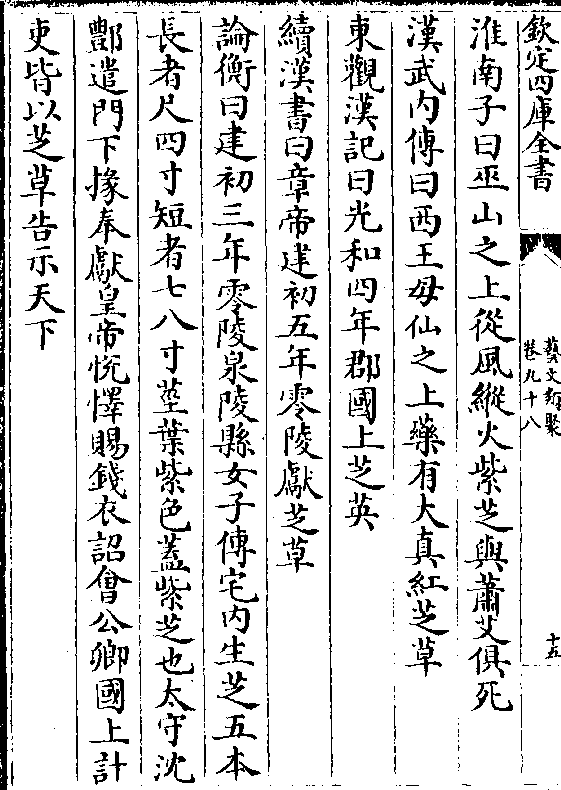 欽定四庫全書
藝文類聚
卷九十八
十五
淮南子曰巫山之上從風縱火紫芝與蕭艾俱死
漢武内傳曰西王母仙之上藥有大真紅芝草
東觀漢記曰光和四年郡國上芝英
續漢書曰章帝建初五年零陵獻芝草
論衡曰建初三年零陵泉陵縣女子傅宅内生芝五本
長者尺四寸短者七八寸莖葉紫色蓋紫芝也太守沈
酆遣門下掾奉獻皇帝悅懌賜錢衣詔會公卿國上計
吏皆以芝草告示天下